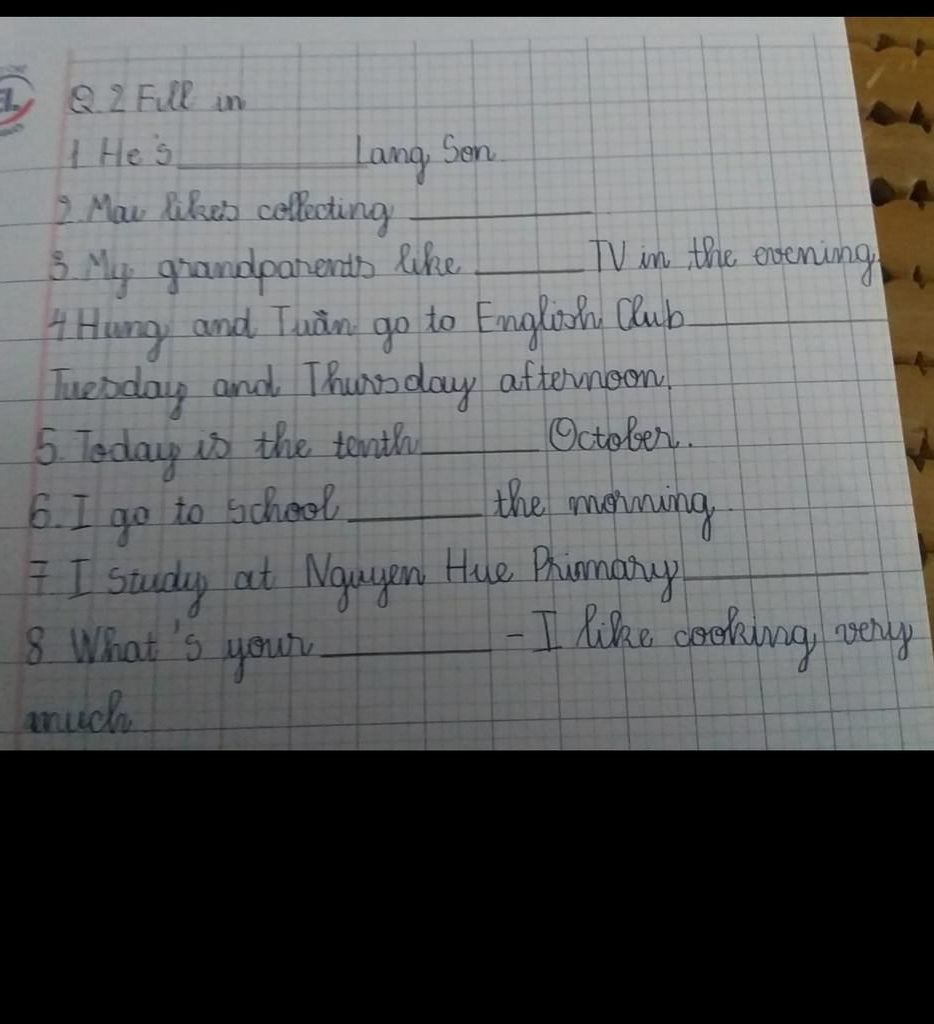 Q.2 Fill in
1 He's ______ Lang Son
2. Mai likes collecting ______
3 My grandparents like ______ TV in the evening.
4 Hung and Tuấn go to English Club ______
Tuesday and Thursday afternoon.
5. Today is the tenth ______ October.
6. I go to school ______ the morning
7 I study at Nguyen Hue Primary ______
8 What's your ______ - I like cooking very
much